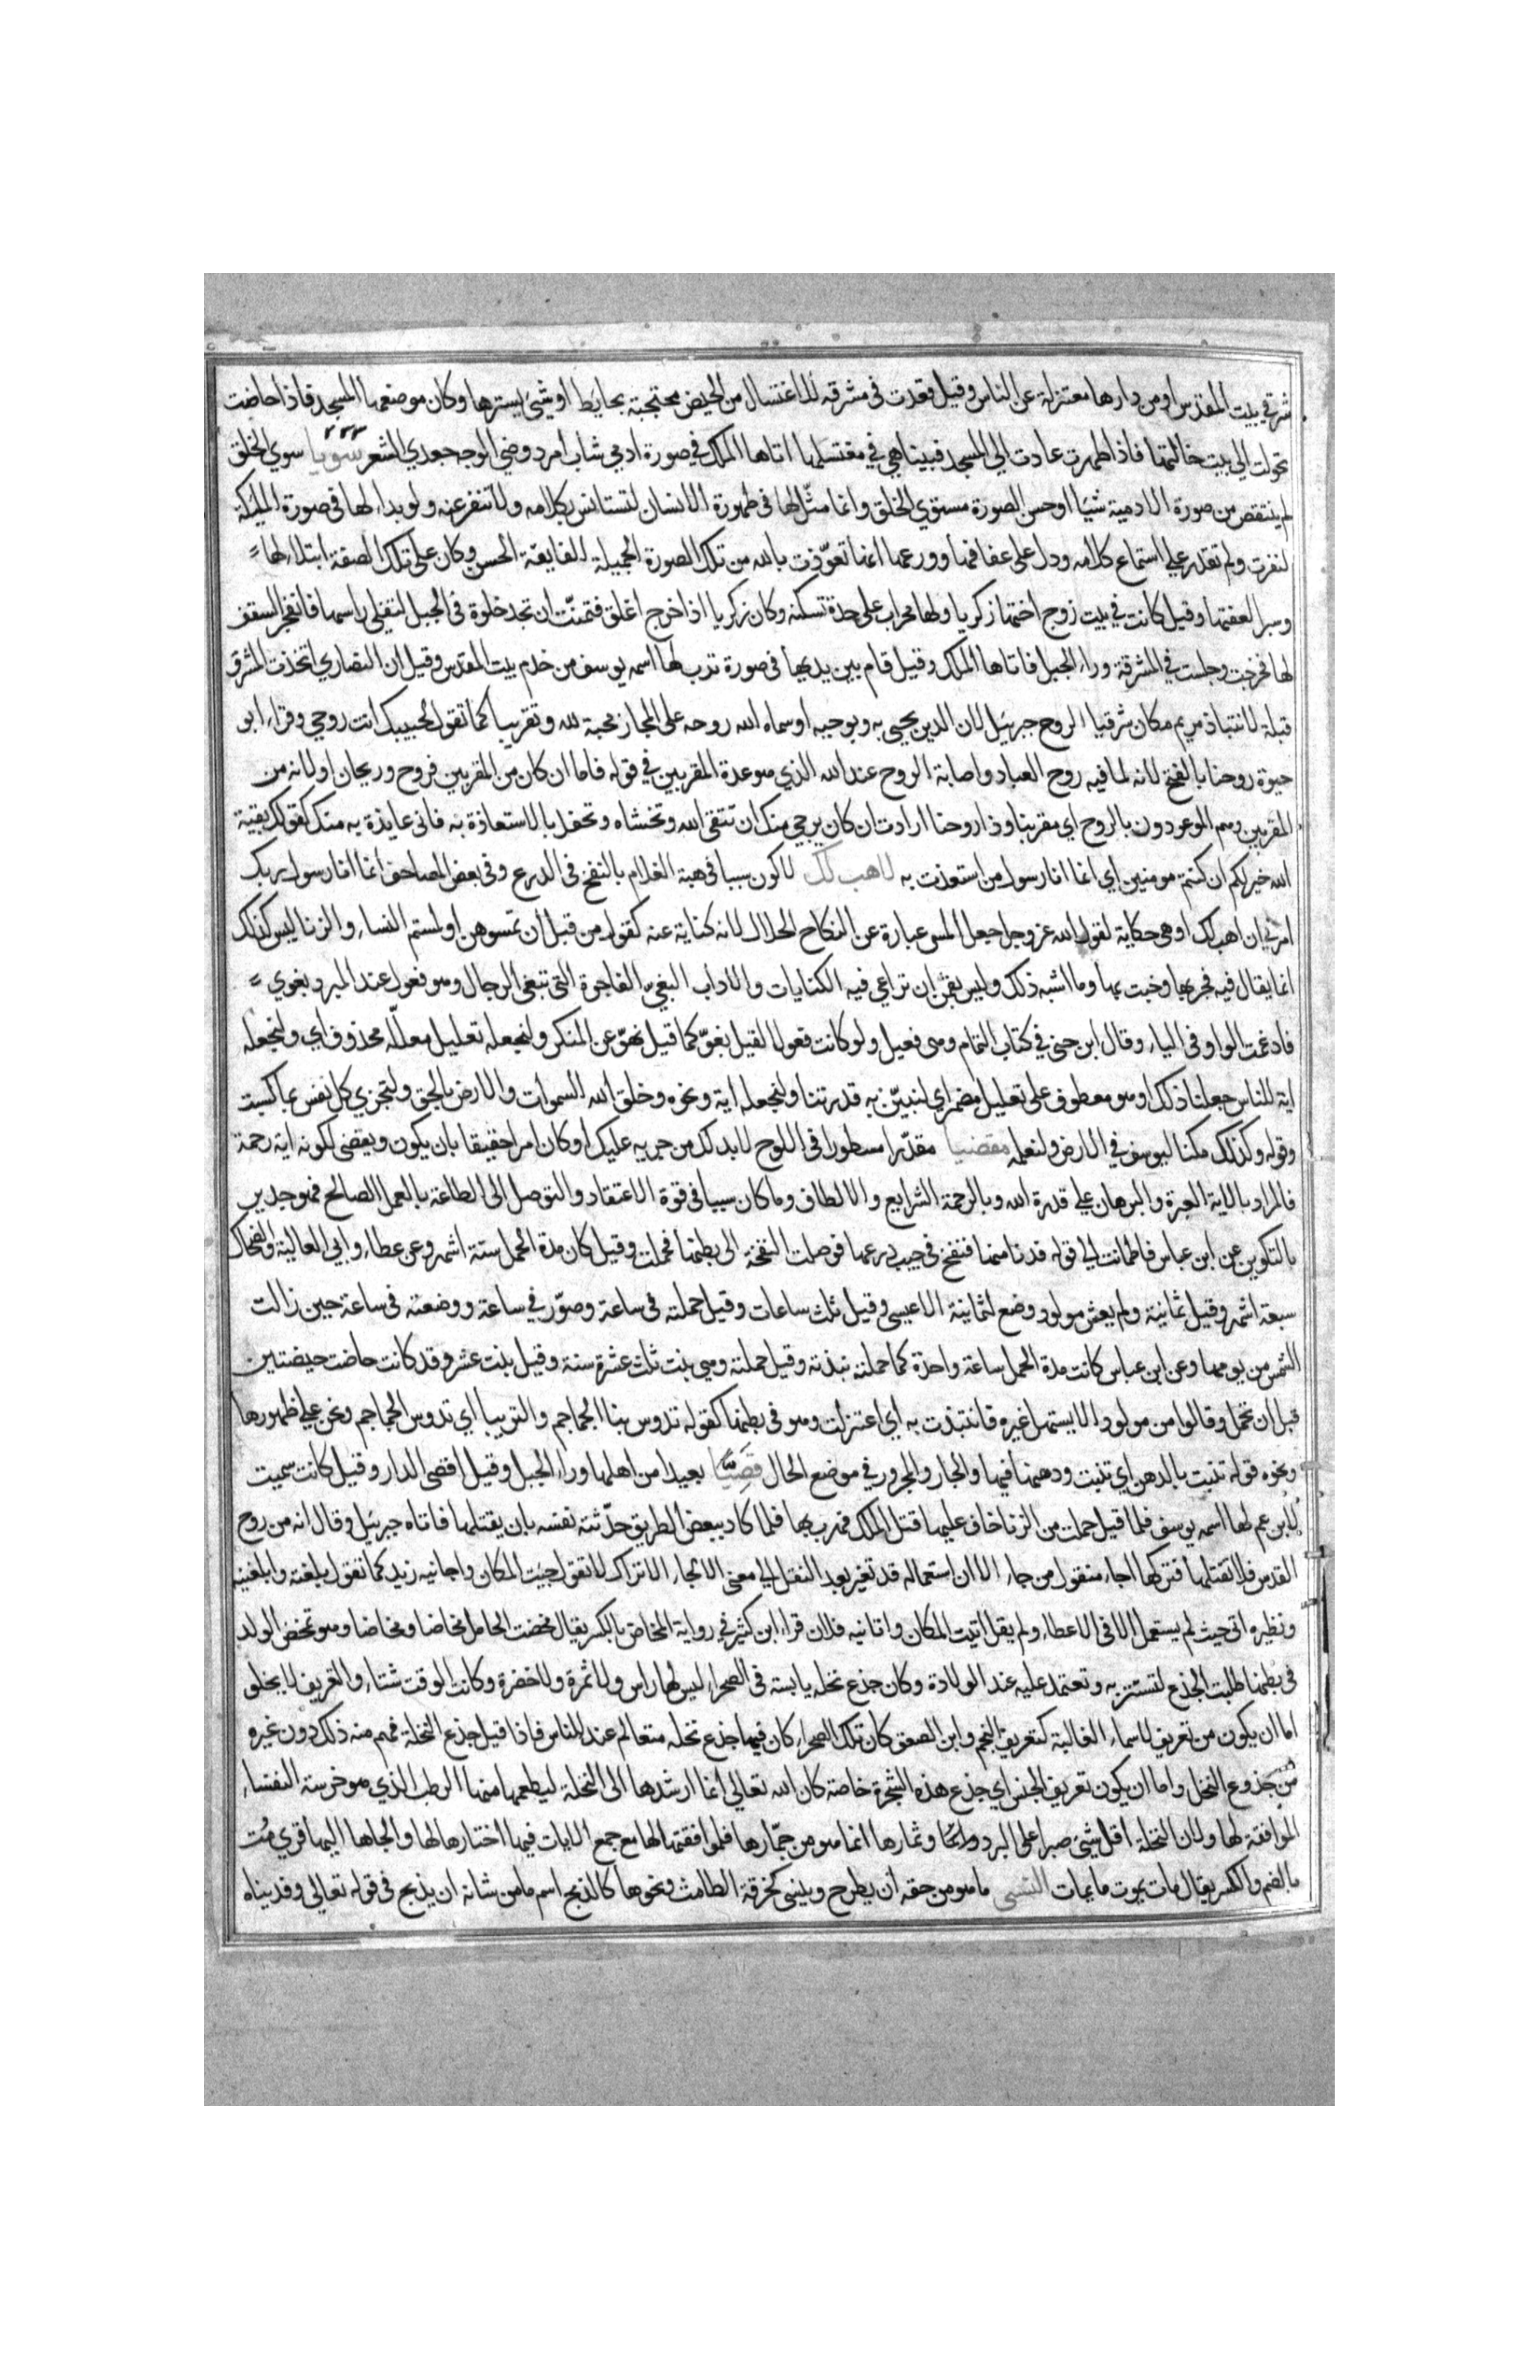 شرقي بيت المقدس او من دارها معتزلة عن الناس وقيل قعدت في مشرقه للاغتسال من الحيض محتجبة بحايط او شيئ يسترها وكان موضعها المسجد فاذا حاضت
تحولت الي بيت خالتها فاذا طهرت عادت الي المسجد فبينا هي في مغتسلها اتاها الملك في صورة ادمي شاب امرد وضي الوجه جعدي الشعر سويا سوي الخلق
لم ينتقص من صورة الادمية شيئا او حسن الصورة مستوي الخلق وانما مثّل لها في صورة الانسان لتستانس بكلامه ولا تنفر عنه ولو بدا لها في صورة الملئكة
لنفرت ولم تقدر علي استماع كلامه ودل على عفافها وورعها انها تعوّذت بالله من تلك الصورة الجميلة الفايقة الحسن وكان على تلك الصفة ابتلاء لها
وسبرا لعفتها وقيل كانت في بيت زوج اختها زكريا ولها محراب على حدة تسكنه وكان زكريا اذا خرج اغلق فتمنّت ان تجد خلوة في الجبل لتفلي راسها فانفجر السقف
لها فخرجت وجلست في المشرقة وراء الجبل فاتاها الملك وقيل قام بين يديها في صورة ترب لها اسمه يوسف من خدم بيت المقدس وقيل ان النصاري اتخذت المشرق
قبلة لانتباذ مريم مكان شرقيا الروح جبرئيل لان الدين يحيى به وبوحيه او سماه الله روحه على المجاز محبة لله وتقريبا كما تقول لحبيبك انت روحي وقراء ابو
حيوة روحنا بالفتح لانه لما فيه روح العباد واصابة الروح عند الله الذي هو عدة المقربين في قوله فاما ان كان من المقربين فروح وريحان او لانه من
المقربين وهم الموعودون بالروح اي مقربنا وذا روحنا ارادت ان كان يرجي منك ان تتقي الله وتخشاه وتحفل بالاستعاذة به فاني عايذة به منك كقوله بقية
الله خير لكم ان كنتم مومنين اي انما انا رسول من استعذت به لاهب لك لاكون سببا في هبة الغلام بالنفخ في الدرع وفي بعض المصاحف انما انا رسول ربك
امرني ان اهب لك او هي حكاية لقول الله عز وجل جعل المس عبارة عن النكاح الحلال لانه كناية عنه كقوله من قبل ان تمسوهن او لمستم النساء والزنا ليس كذلك
انما يقال فيه فجر بها وخبث بها وما اشبه ذلك وليس بقمن ان تراعي فيه الكنايات والاداب البغيّ الفاجرة التي تبغي الرجال وهو فعول عند المبرد بغوي
فادغمت الواو في الياء وقال ابن جني في كتاب التمام وهي فعيل ولو كانت فعولا لقيل بغوّ كما قيل نهوّ عن المنكر ولنجعله تعليل معلّله محذوف اي ولنجعله
اية للناس جعلنا ذلك او هو معطوف على تعليل مضمر اي لنبيّن به قدرتنا ولنجعله اية ونحوه وخلق الله السموات والارض بالحق ولتجزي كل نفس بما كسبت
وقوله وكذلك مكنا ليوسف في الارض ولنعلمه مقضيا مقدّرا مسطورا في اللوح لا بد لك من جريه عليك او كان امرا حقيقا بان يكون ويقضي لكونه اية ورحمة
فالمراد بالاية العبرة والبرهان علي قدرة الله وبالرحمة الشرايع والالطاف وما كان سببا في قوة الاعتقاد والتوصل الى الطاعة بالعمل الصالح فهو جدير
بالتكوين عن ابن عباس فاطمانت الي قوله فدنا منها فنفخ في جيب درعها فوصلت النفخة الى بطنها فحملت وقيل كان مدة الحمل ستة اشهر وعن عطاء وابي العالية والضحاك
سبعة اشهر وقيل ثمانية ولم يعش مولود وضع لثمانية الا عيسى وقيل ثلث ساعات وقيل حملته في ساعة وصوّر في ساعة ووضعته في ساعة حين زالت
الشمس من يومها وعن ابن عباس كانت مدة الحمل ساعة واحدة كما حملته نبذته وقيل حملته وهي بنت ثلث عشرة سنة وقيل بنت عشر وقد كانت حاضت حيضتين
قبل ان تحمل وقالوا من مولود الا يستهل غيره فانتبذت به اي اعتزلت وهو في بطنها كقوله تدوس بنا الجماجم والتريبا اي تدوس الجماجم ونحن علي ظهورها
ونحوه قوله تنبت بالدهن اي تنبت ودهنها فيها والجار والمجرور في موضع الحال قصيّا بعيدا من اهلها وراء الجبل وقيل اقصى الدار وقيل كانت سميت
لابن عم لها اسمه يوسف فلما قيل حملت من الزنا خاف عليها قتل الملك فهرب بها فلما كان ببعض الطريق حدّثته نفسه بان يقتلها فاتاه جبرئيل وقال انه من روح
القدس فلا تقتلها فتركها اجاء منقول من جاء الا ان استعماله قد تغير بعد النقل الي معنى الالجاء الا تراك لا تقول جيت المكان واجانيه زيد كما تقول بلغته وابلغنيه
ونظيره اتي حيث لم يستعمل الا في الاعطاء ولم يقل اتيت المكان واتانيه فلان قراء ابن كثير في رواية المخاض بالكسر يقال مخضت الحامل مخاضا ومخاضا وهو تمخض الولد
في بطنها طلبت الجذع لتستتر به وتعتمد عليه عند الولادة وكان جذع نخله يابسة في الصحراء ليس لها راس ولا ثمرة ولا خضرة وكان الوقت شتاء والتعريف لا يخلو
اما ان يكون من تعريف الاسماء الغالبة كتعريف النجم وابن الصعق كان تلك الصحراء كان فيها جذع نخله متعالم عند الناس فاذا قيل جذع النخلة فهم منه ذلك دون غيره
من جذوع النخل واما ان يكون تعريف الجنس اي جذع هذه الشجرة خاصة كان الله تعالي انما ارشدها الى النخلة ليطعمها منها الرطب الذي هو خرسة النفساء
الموافقة لها ولان النخلة اقل شيئ صبرا على البرد وثمارها انما هو من جمّارها فلموافقتها لها مع جمع الايات فيها اختارها لها والجاها اليها قري مُت
بالضم والكسر يقال مات يموت ومات يمات النسي ما هو من حقه ان يطرح وينسى كخرقة الطامث ونحوها كالذبح اسم ما من شانه ان يذبح في قوله تعالي وفديناه